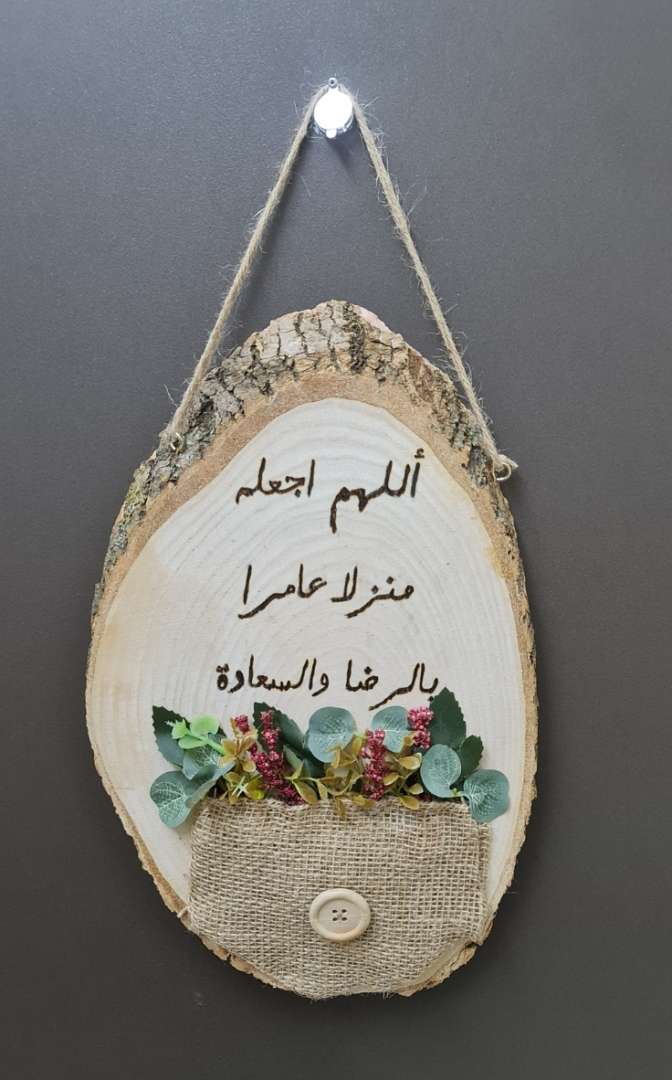 أللهم اجعله
منزلا عامرا
بالرضا والسعادة